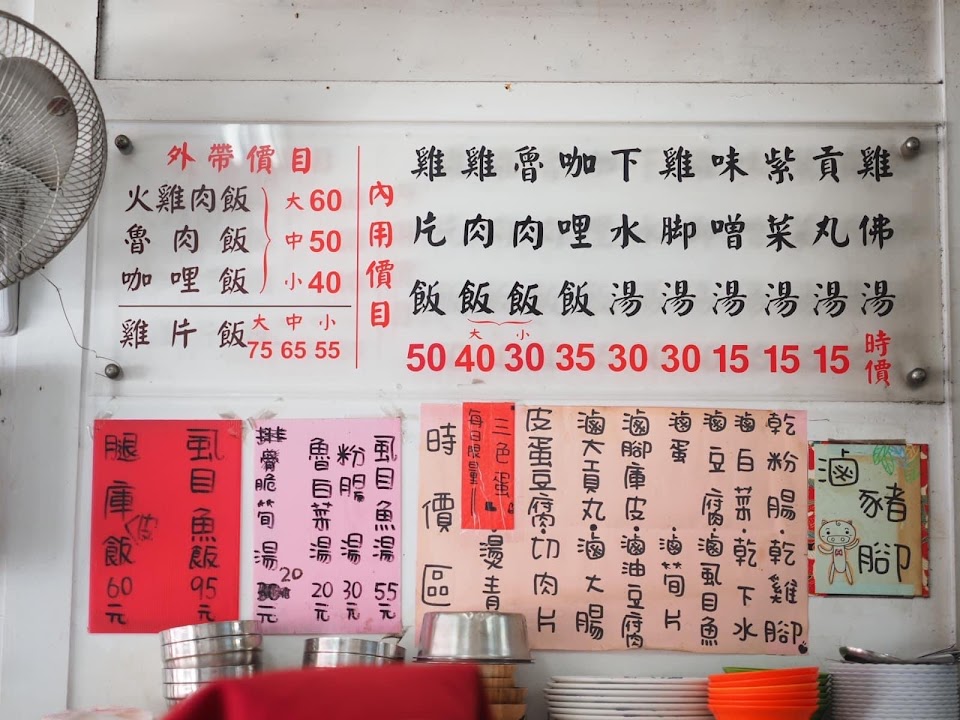 外帶價目
火雞肉飯 大60
魯肉飯 中50
咖哩飯 小40
雞片飯 大75 中65 小55
內用價目
雞片飯 50
雞肉飯 大 40
魯肉飯 小 30
咖哩飯 35
下水湯 30
雞脚湯 30
味噌湯 15
紫菜湯 15
貢丸湯 15
雞佛湯 時價
虱目魚飯95元
腿庫飯60元
(皮)
虱目魚湯 55元
粉腸湯 30元
魯白菜湯 20元
排骨脆筍湯 20
時價區
三色蛋
每日限量
乾粉腸·乾雞腳
滷白菜·乾下水
滷豆腐·滷虱目魚
滷蛋·滷筍片
滷腳庫皮·滷油豆腐
滷大貢丸·滷大腸
皮蛋豆腐·切肉片
燙青
滷豬腳